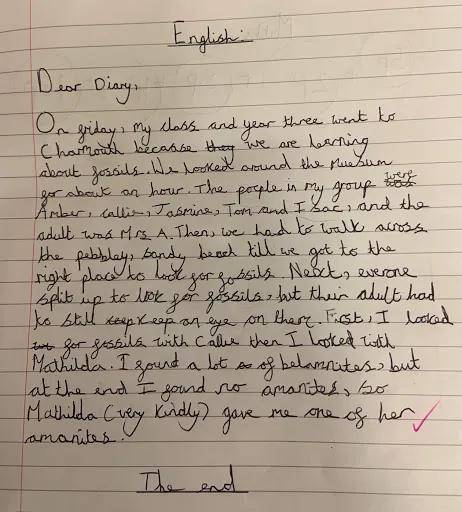 English:
Dear Diary,
On friday, my class and year three went to
Charmouth because they we are learning
about fossils. We looked around the Muesum
for about an hour. The people in my group was were
Amber, callie, Jasmine, Tom and I sac, and the
adult was Mrs A. Then, we had to walk across
the pebbley, sandy beach till we got to the
right place to look for fossils. Next, everone
split up to look for fossils, but their adult had
to still keep keep an eye on them. First, I looked
for fossils with Callie then I looked with
Mathilda. I found a lot of belamnites, but
at the end I found no amanites, so
Mathilda (very kindly) gave me one of her
amanites.
The end